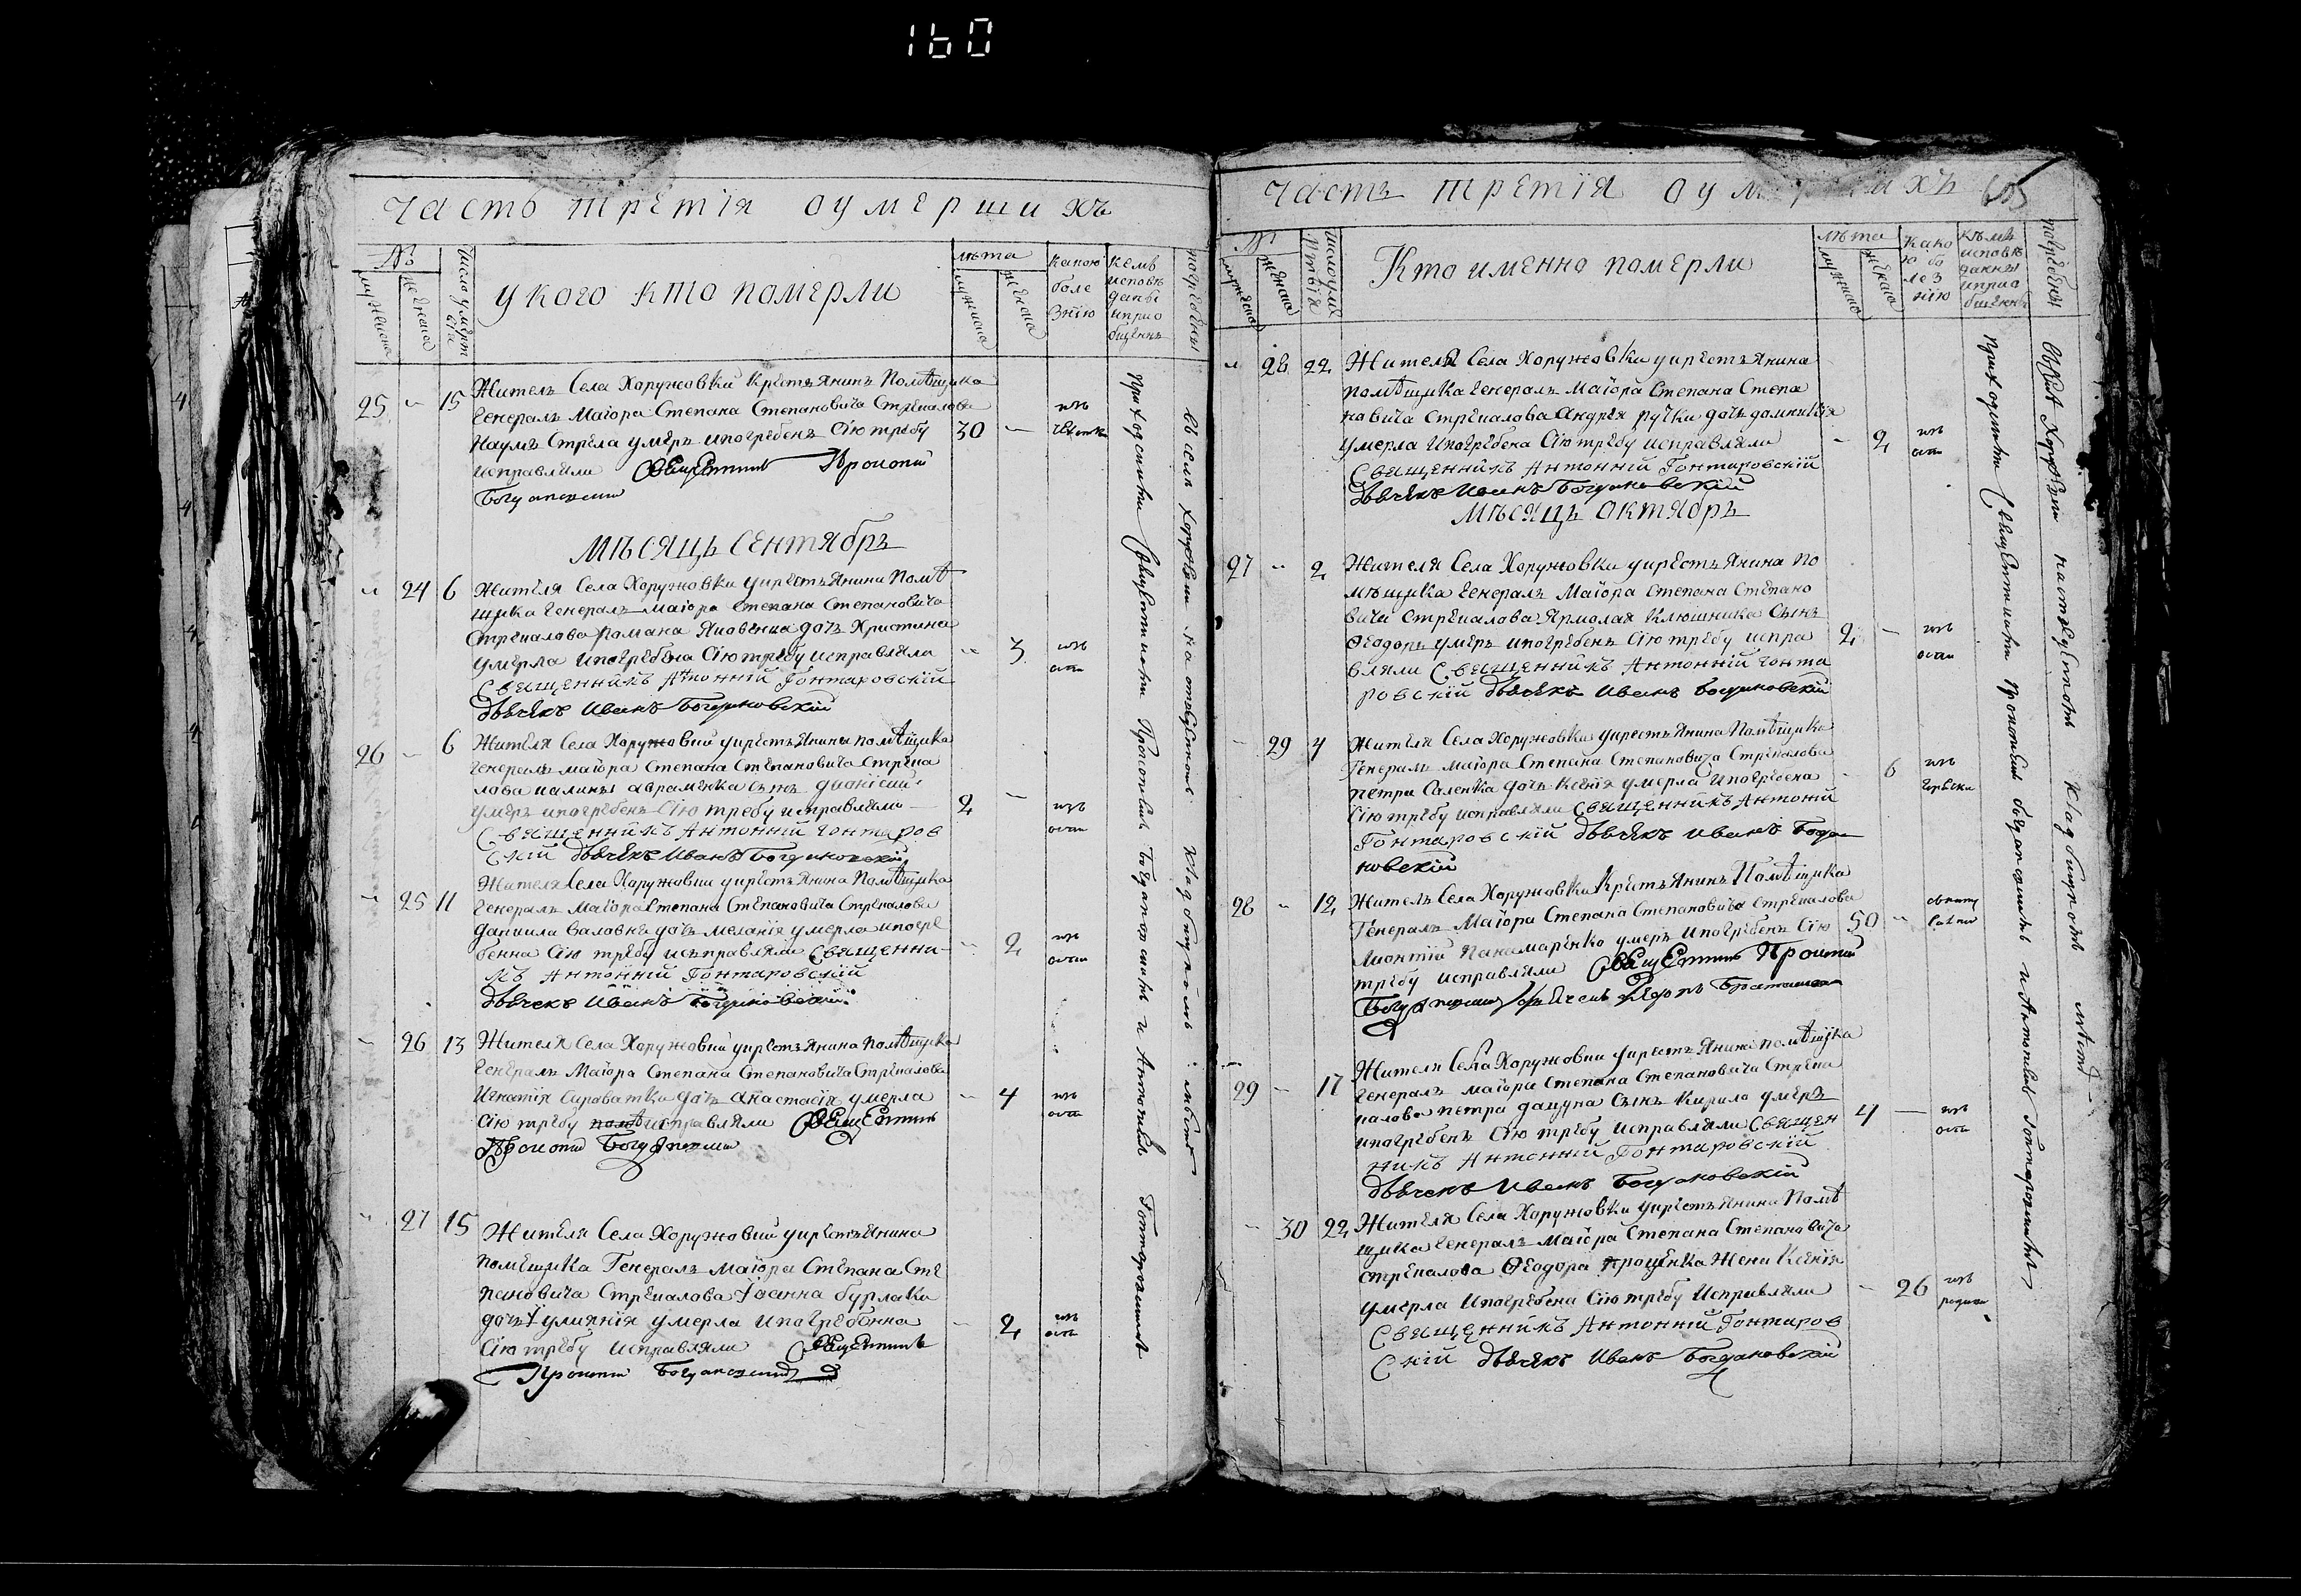 160
Часть третія оумершихъ
№
мужеска
женска
Число умертвія
У кого кто померли
лѣта
мужеска
женска
какою болезнію
кемъ исповѣданы и приобщенны
погребены
25 15 Житель Села Хоружовки Крестьянинъ Помѣщика
Генералъ Маіора Степана Степановича Стрекалова
Наумъ Стрела умеръ и погребенъ Сію требу 30
исправляли Священникъ Прокопій
Богдановскій
Мѣсяцъ Сентябръ
24 6 Жителя Села Хоружовки крестьянина Помѣ
щика Генералъ Маіора Степана Степановича
Стрекалова Романа Яковенка дочъ Христина
умерла и погребена Сію требу исправляли 3
Священникъ Антонній Гонтаровскій
Дьячекъ Иванъ Богдановскій
26 6 Жителя Села Хоружовки крестьянина помѣщика
Генералъ маіора Степана Степановича Стрека
лова Авраменка сынъ Дионісий
умеръ и погребенъ Сію требу исправляли 2
Священникъ Антонній Гонтаров
скій Дьячекъ Иванъ Богдановскій
25 11 Жителя Села Хоружовки крестьянина Помѣщика
Генералъ Маіора Степана Степановича Стрекалова
Даниила дочъ Меланія умерла и погре
бенна Сію требу исъправляли Священни 2
къ Антонній Гонтаровскій
Дьячекъ Иванъ Богдановскій
26 13 Жителя Села Хоружовки крестьянина помѣщика
Генералъ Маіора Степана Степановича Стрекалова
Игнатія Сироватки дочъ Анастасія умерла 4
Сію требу исправляли Священникъ
Прокопій Богдановскій
27 15 Жителя Села Хоружовки крестьянина
помещика Генералъ маіора Степана Сте
пановича Стрекалова Іоанна бурлаки
дочъ Іулианія умерла и погребѣнна 2
Сію требу исправляли Священникъ
Прокопій Богдановскій
Приходскими Священниками Прокопіемъ Богдановскимъ и Антоніемъ Гонтаровскимъ
Въ селе Хоружовки на отведенномъ кладбищномъ местѣ
Часть третія оумершихъ
605
№
мужеска
женска
Число умертвія
Кто именно померли
лѣта
мужеска
женска
Какою болезнію
кѣмъ исповѣданны и приобщенны
погребены
28 22 Жителя Села Хоружовки крестьянина
помѣщика Генералъ Маіора Степана Степа
новича Стрекалова Андрея Ручки дочъ домникія
умерла и погребена Сію требу исправляли 2
Священникъ Антонній Гонтаровскій
Дьячекъ Иванъ Богдановскій
Мѣсяцъ Октябръ
27 2 Жителя Села Хоружовки крестьянина по
мѣщика Генералъ Маіора Степана Степано
вича Стрекалова Ярмолая Клюшника Сынъ
Ѳеодоръ умеръ и погребенъ Сію требу испра 2
вляли Священникъ Антонній Гонта
ровскій Дьячекъ Иванъ Богдановскій
29 4 Жителя Села Хоружовки крестьянина Помѣщика
Генералъ маіора Степана Степановича Стрекалова
петра Саленка дочъ Ксенія умерла и погребена 6
Сію требу исправляли Священникъ Антоній
Гонтаровскій Дьячекъ Иванъ Богда
новскій
28 12 Житель Села Хоружовки Крестьянинъ Помѣщика
Генералъ Маіора Степана Степановича Стрекалова
Панамаренко умеръ и погребенъ Сію 50
требу исправляли Священникъ Прокопій
Богдановскій
29 17 Жителя Села Хоружовки крестьянина помѣщика
Генералъ маіора Степана Степановича Стре
калова петра дацуна Сынъ Кирило умеръ
и погребенъ Сію требу исправляли Священ 4
никъ Антонній Гонтаровскій
Дьячекъ Иванъ Богдановскій
30 22 Жителя Села Хоружовки крестьянина Помѣ
щика Генералъ Маіора Степана Степановича
Стрекалова Ѳеодора Проценка Жена Ксенія
умерла и погребена Сію требу Исправляли 26
Священникъ Антонній Гонтаров
скій Дьячекъ Иванъ Богдановскій
Приходскими Священниками Прокопіемъ Богдановскимъ и Антоніемъ Гонтаровскимъ